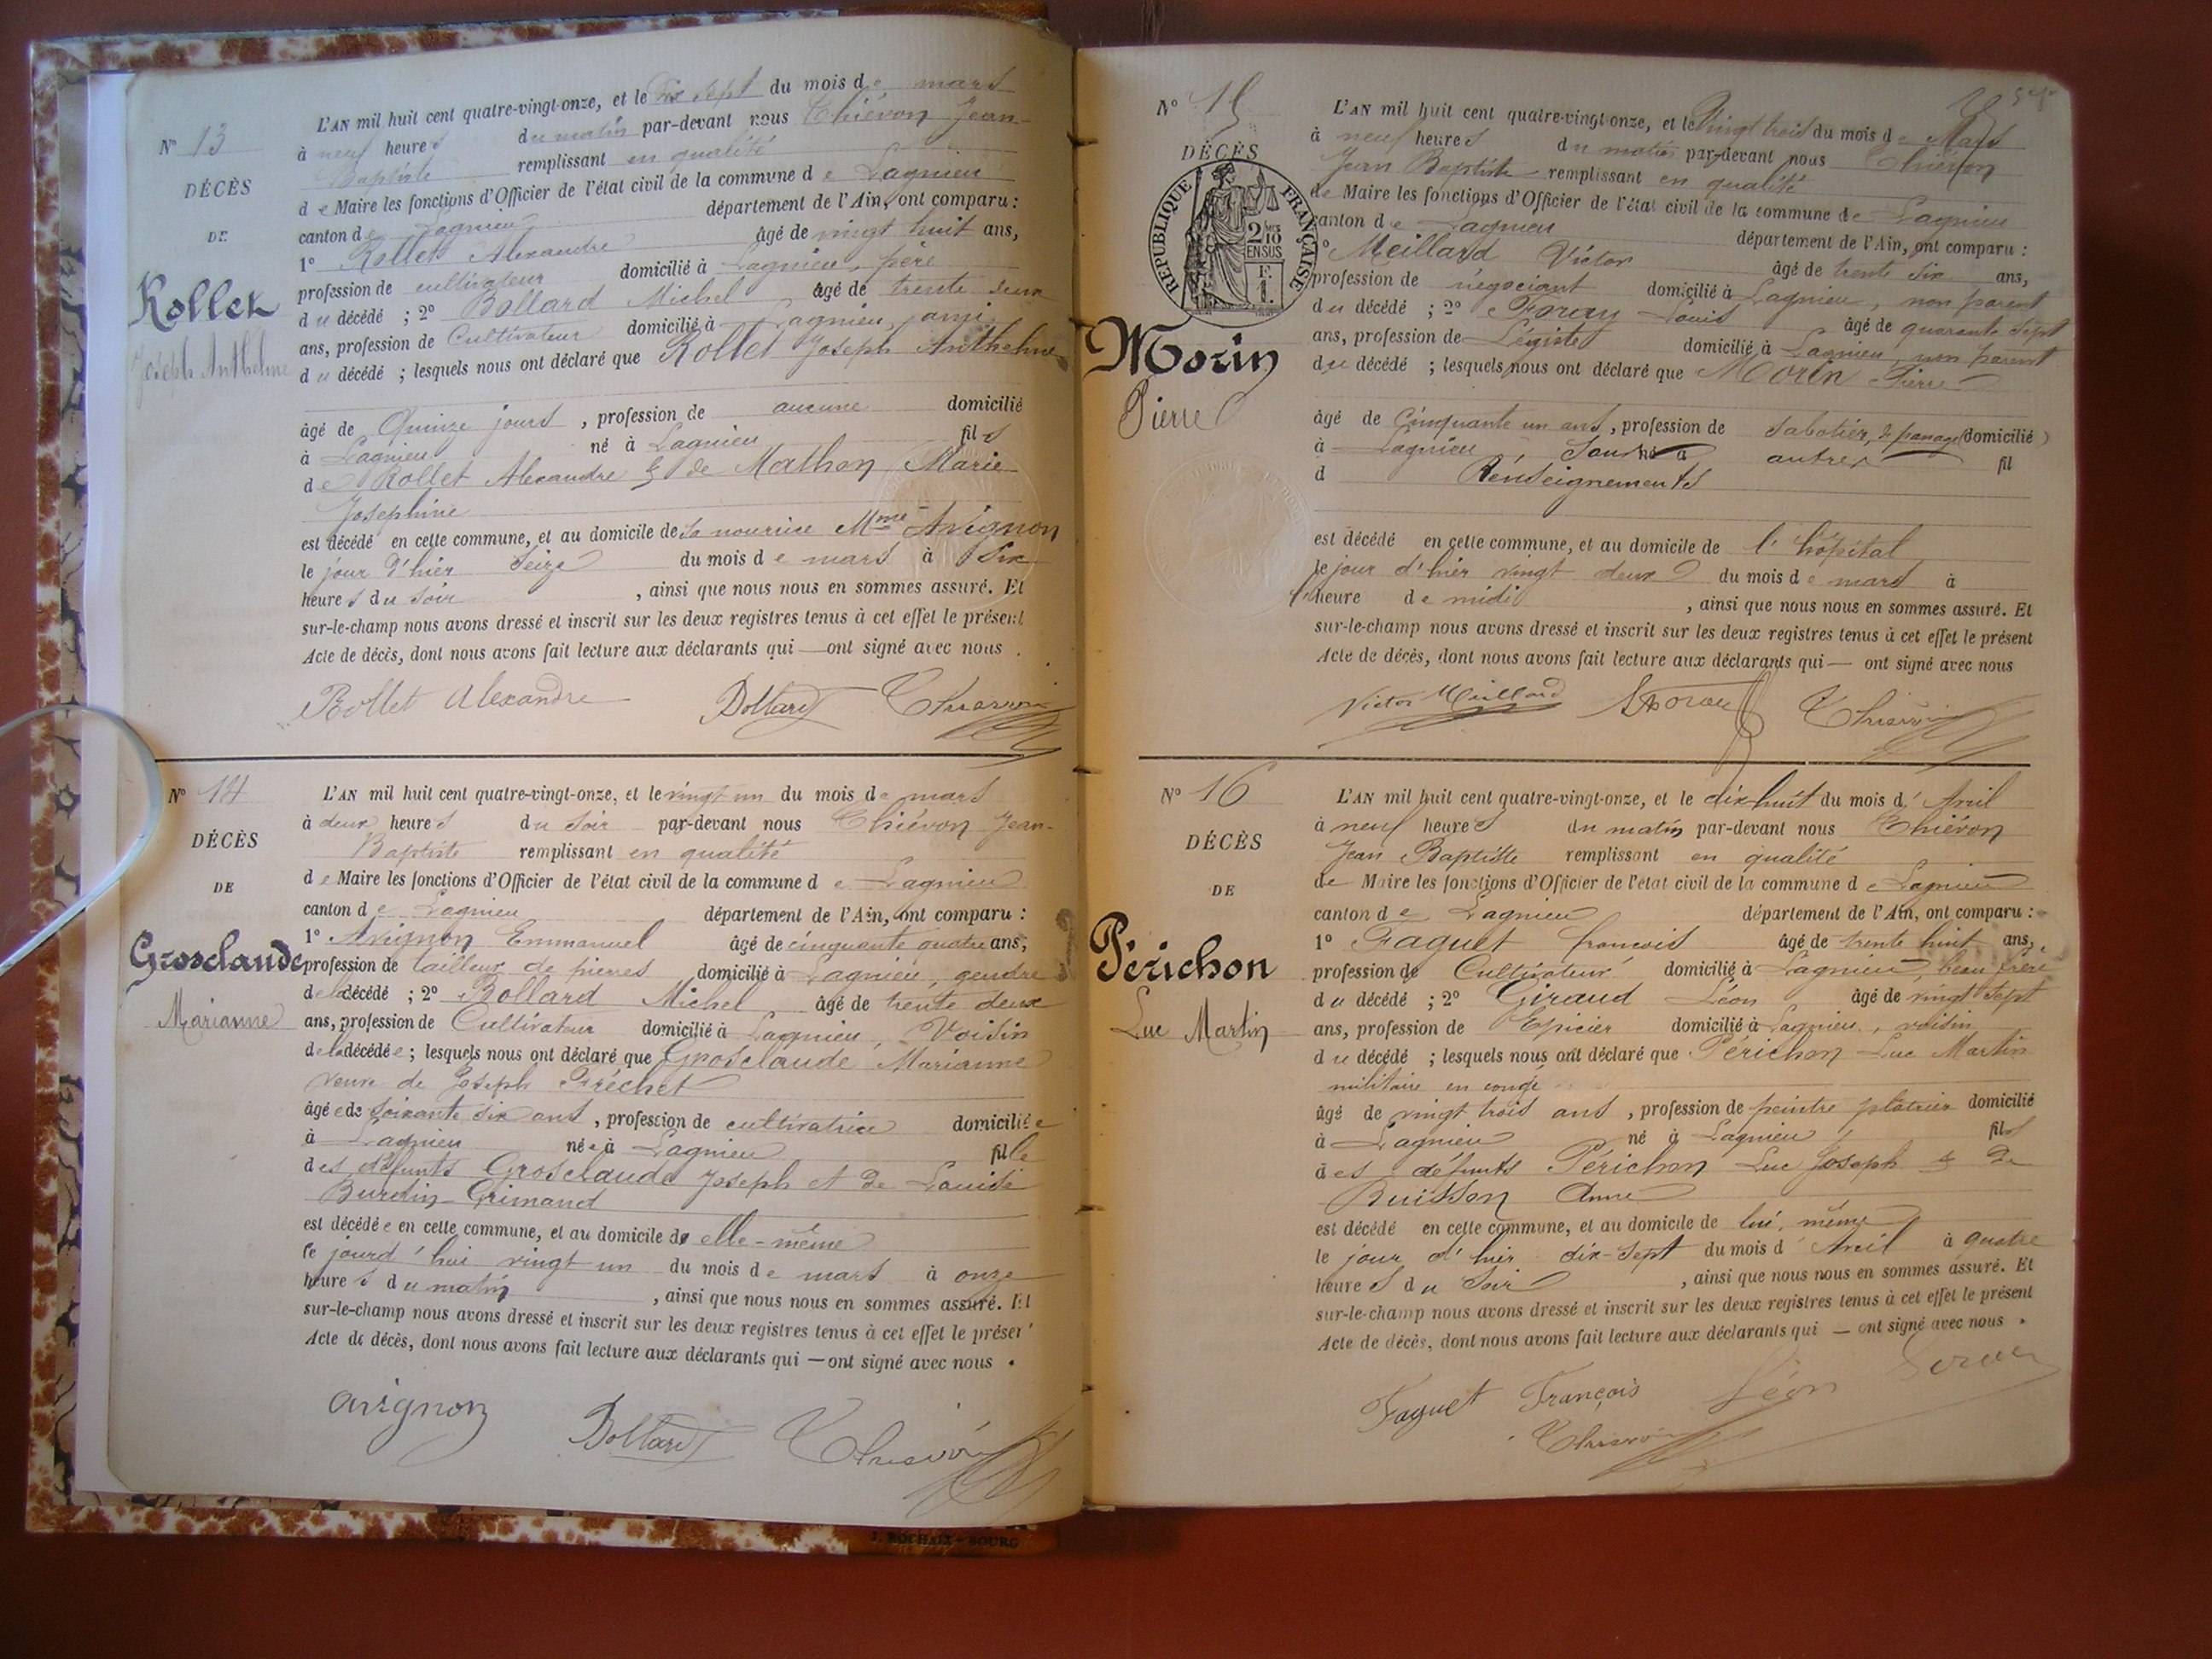 N° 13
DÉCÈS
DE
Rollet
Joseph Anthelme
L'AN mil huit cent quatre-vingt-onze, et le dix sept du mois de mars
à neuf heures du matin par-devant nous Thiévon Jean-
Baptiste remplissant en qualité
de Maire les fonctions d'Officier de l'état civil de la commune de Lagnieu
canton de Lagnieu département de l'Ain, ont comparu :
1° Rollet Alexandre âgé de vingt huit ans,
profession de cultivateur domicilié à Lagnieu, père
du décédé ; 2° Bollard Michel âgé de trente deux
ans, profession de Cultivateur domicilié à Lagnieu, ami
du décédé ; lesquels nous ont déclaré que Rollet Joseph Anthelme
âgé de Quinze jours, profession de aucune domicilié
à Lagnieu né à Lagnieu fils
de Rollet Alexandre & de Mathon Marie
Josephine
est décédé en cette commune, et au domicile de sa nourrice Mme Avignon
le jour d'hier Seize du mois de mars à Six
heures du soir, ainsi que nous nous en sommes assuré. Et
sur-le-champ nous avons dressé et inscrit sur les deux registres tenus à cet effet le présent
Acte de décès, dont nous avons fait lecture aux déclarants qui — ont signé avec nous.
Rollet Alexandre Bollard Thiévon
N° 14
DÉCÈS
DE
Grosclaude
Marianne
L'AN mil huit cent quatre-vingt-onze, et le vingt-un du mois de mars
à deux heures du soir par-devant nous Thiévon Jean-
Baptiste remplissant en qualité
de Maire les fonctions d'Officier de l'état civil de la commune de Lagnieu
canton de Lagnieu département de l'Ain, ont comparu :
1° Avignon Emmanuel âgé de cinquante quatre ans,
profession de tailleur de pierres domicilié à Lagnieu, gendre
de la décédé ; 2° Bollard Michel âgé de trente deux
ans, profession de Cultivateur domicilié à Lagnieu, Voisin
de la décédée ; lesquels nous ont déclaré que Grosclaude Marianne
veuve de Joseph Fréchet
âgée de soixante six ans, profession de cultivatrice domiciliée
à Lagnieu née à Lagnieu fille
des défunts Grosclaude Joseph et de Louise
Burdin-Grimaud
est décédée en cette commune, et au domicile de elle-même
le jourd'hui vingt un du mois de mars à onze
heures du matin, ainsi que nous nous en sommes assuré. Et
sur-le-champ nous avons dressé et inscrit sur les deux registres tenus à cet effet le présent
Acte de décès, dont nous avons fait lecture aux déclarants qui — ont signé avec nous.
avignon
Bollard Thiévon
J. ROCHAIX - BOURG
N° 15
DÉCÈS
RÉPUBLIQUE FRANÇAISE
2/10
EN SUS
Morin
Pierre
L'AN mil huit cent quatre-vingt-onze, et le Vingt trois du mois de Mars
à neuf heures du matin par-devant nous Thiévon
Jean Baptiste remplissant en qualité
de Maire les fonctions d'Officier de l'état civil de la commune de Lagnieu
canton de Lagnieu département de l'Ain, ont comparu :
1° Meillard Victor âgé de trente six ans,
profession de négociant domicilié à Lagnieu, non parent
du décédé ; 2° Foray Louis âgé de quarante sept
ans, profession de Légiste domicilié à Lagnieu, non parent
du décédé ; lesquels nous ont déclaré que Morin Pierre
âgé de Cinquante un ans, profession de sabotier, de passage (domicilié)
à Lagnieu, Sans né à autres fil
d Renseignements
est décédé en cette commune, et au domicile de l'hôpital
le jour d'hier vingt deux du mois de mars à
l'heure de midi, ainsi que nous nous en sommes assuré. Et
sur-le-champ nous avons dressé et inscrit sur les deux registres tenus à cet effet le présent
Acte de décès, dont nous avons fait lecture aux déclarants qui — ont signé avec nous
Victor Meillard Foray Thiévon
N° 16
DÉCÈS
DE
Périchon
Luc Martin
L'AN mil huit cent quatre-vingt-onze, et le dix huit du mois d'Avril
à neuf heures du matin par-devant nous Thiévon
Jean Baptiste remplissant en qualité
de Maire les fonctions d'Officier de l'état civil de la commune de Lagnieu
canton de Lagnieu département de l'Ain, ont comparu :
1° Faguet françois âgé de trente huit ans,
profession de Cultivateur domicilié à Lagnieu, beau frère
du décédé ; 2° Giraud Léon âgé de vingt sept
ans, profession de Epicier domicilié à Lagnieu, voisin
du décédé ; lesquels nous ont déclaré que Périchon Luc Martin
militaire en congé
âgé de vingt trois ans, profession de peintre plâtrier domicilié
à Lagnieu né à Lagnieu, fils
des défunts Périchon Luc Joseph & de
Buisson Anne
est décédé en cette commune, et au domicile de lui-même
le jour d'hier dix-sept du mois d'Avril à quatre
heures du Soir, ainsi que nous nous en sommes assuré. Et
sur-le-champ nous avons dressé et inscrit sur les deux registres tenus à cet effet le présent
Acte de décès, dont nous avons fait lecture aux déclarants qui — ont signé avec nous.
Faguet François Léon
Thiévon